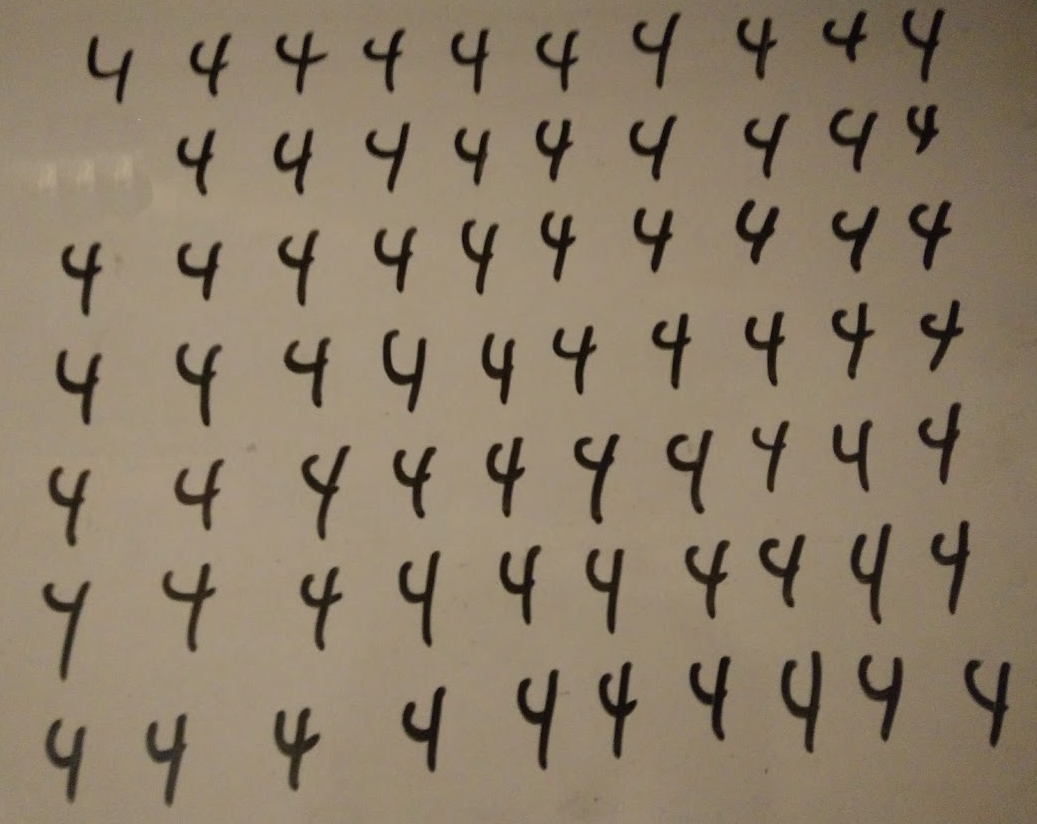 4 4 4 4 4 4 4 4 4 4
4 4 4 4 4 4 4 4 4
4 4 4 4 4 4 4 4 4 4
4 4 4 4 4 4 4 4 4 4
4 4 4 4 4 4 4 4 4 4
4 4 4 4 4 4 4 4 4 4
4 4 4 4 4 4 4 4 4 4